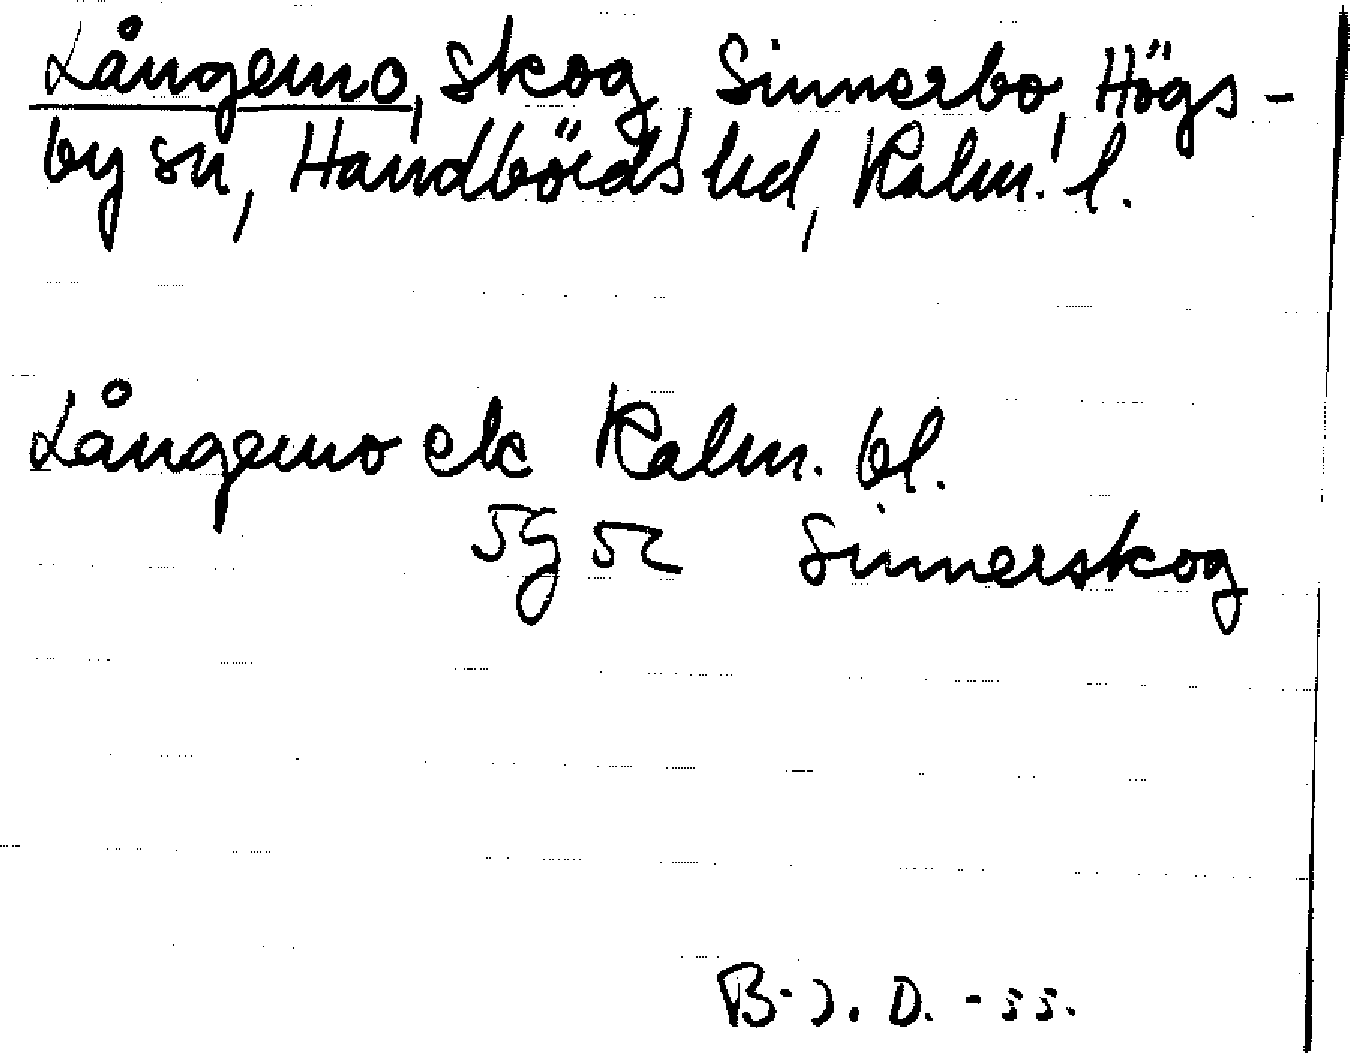 Långemo, skog Sinnerbo, Högs-
by sn, Handbörds hd, Kalm. l.
Långemo ek Kalm. bl.
5g 52 Sinnerskog
B-J. D. -55.